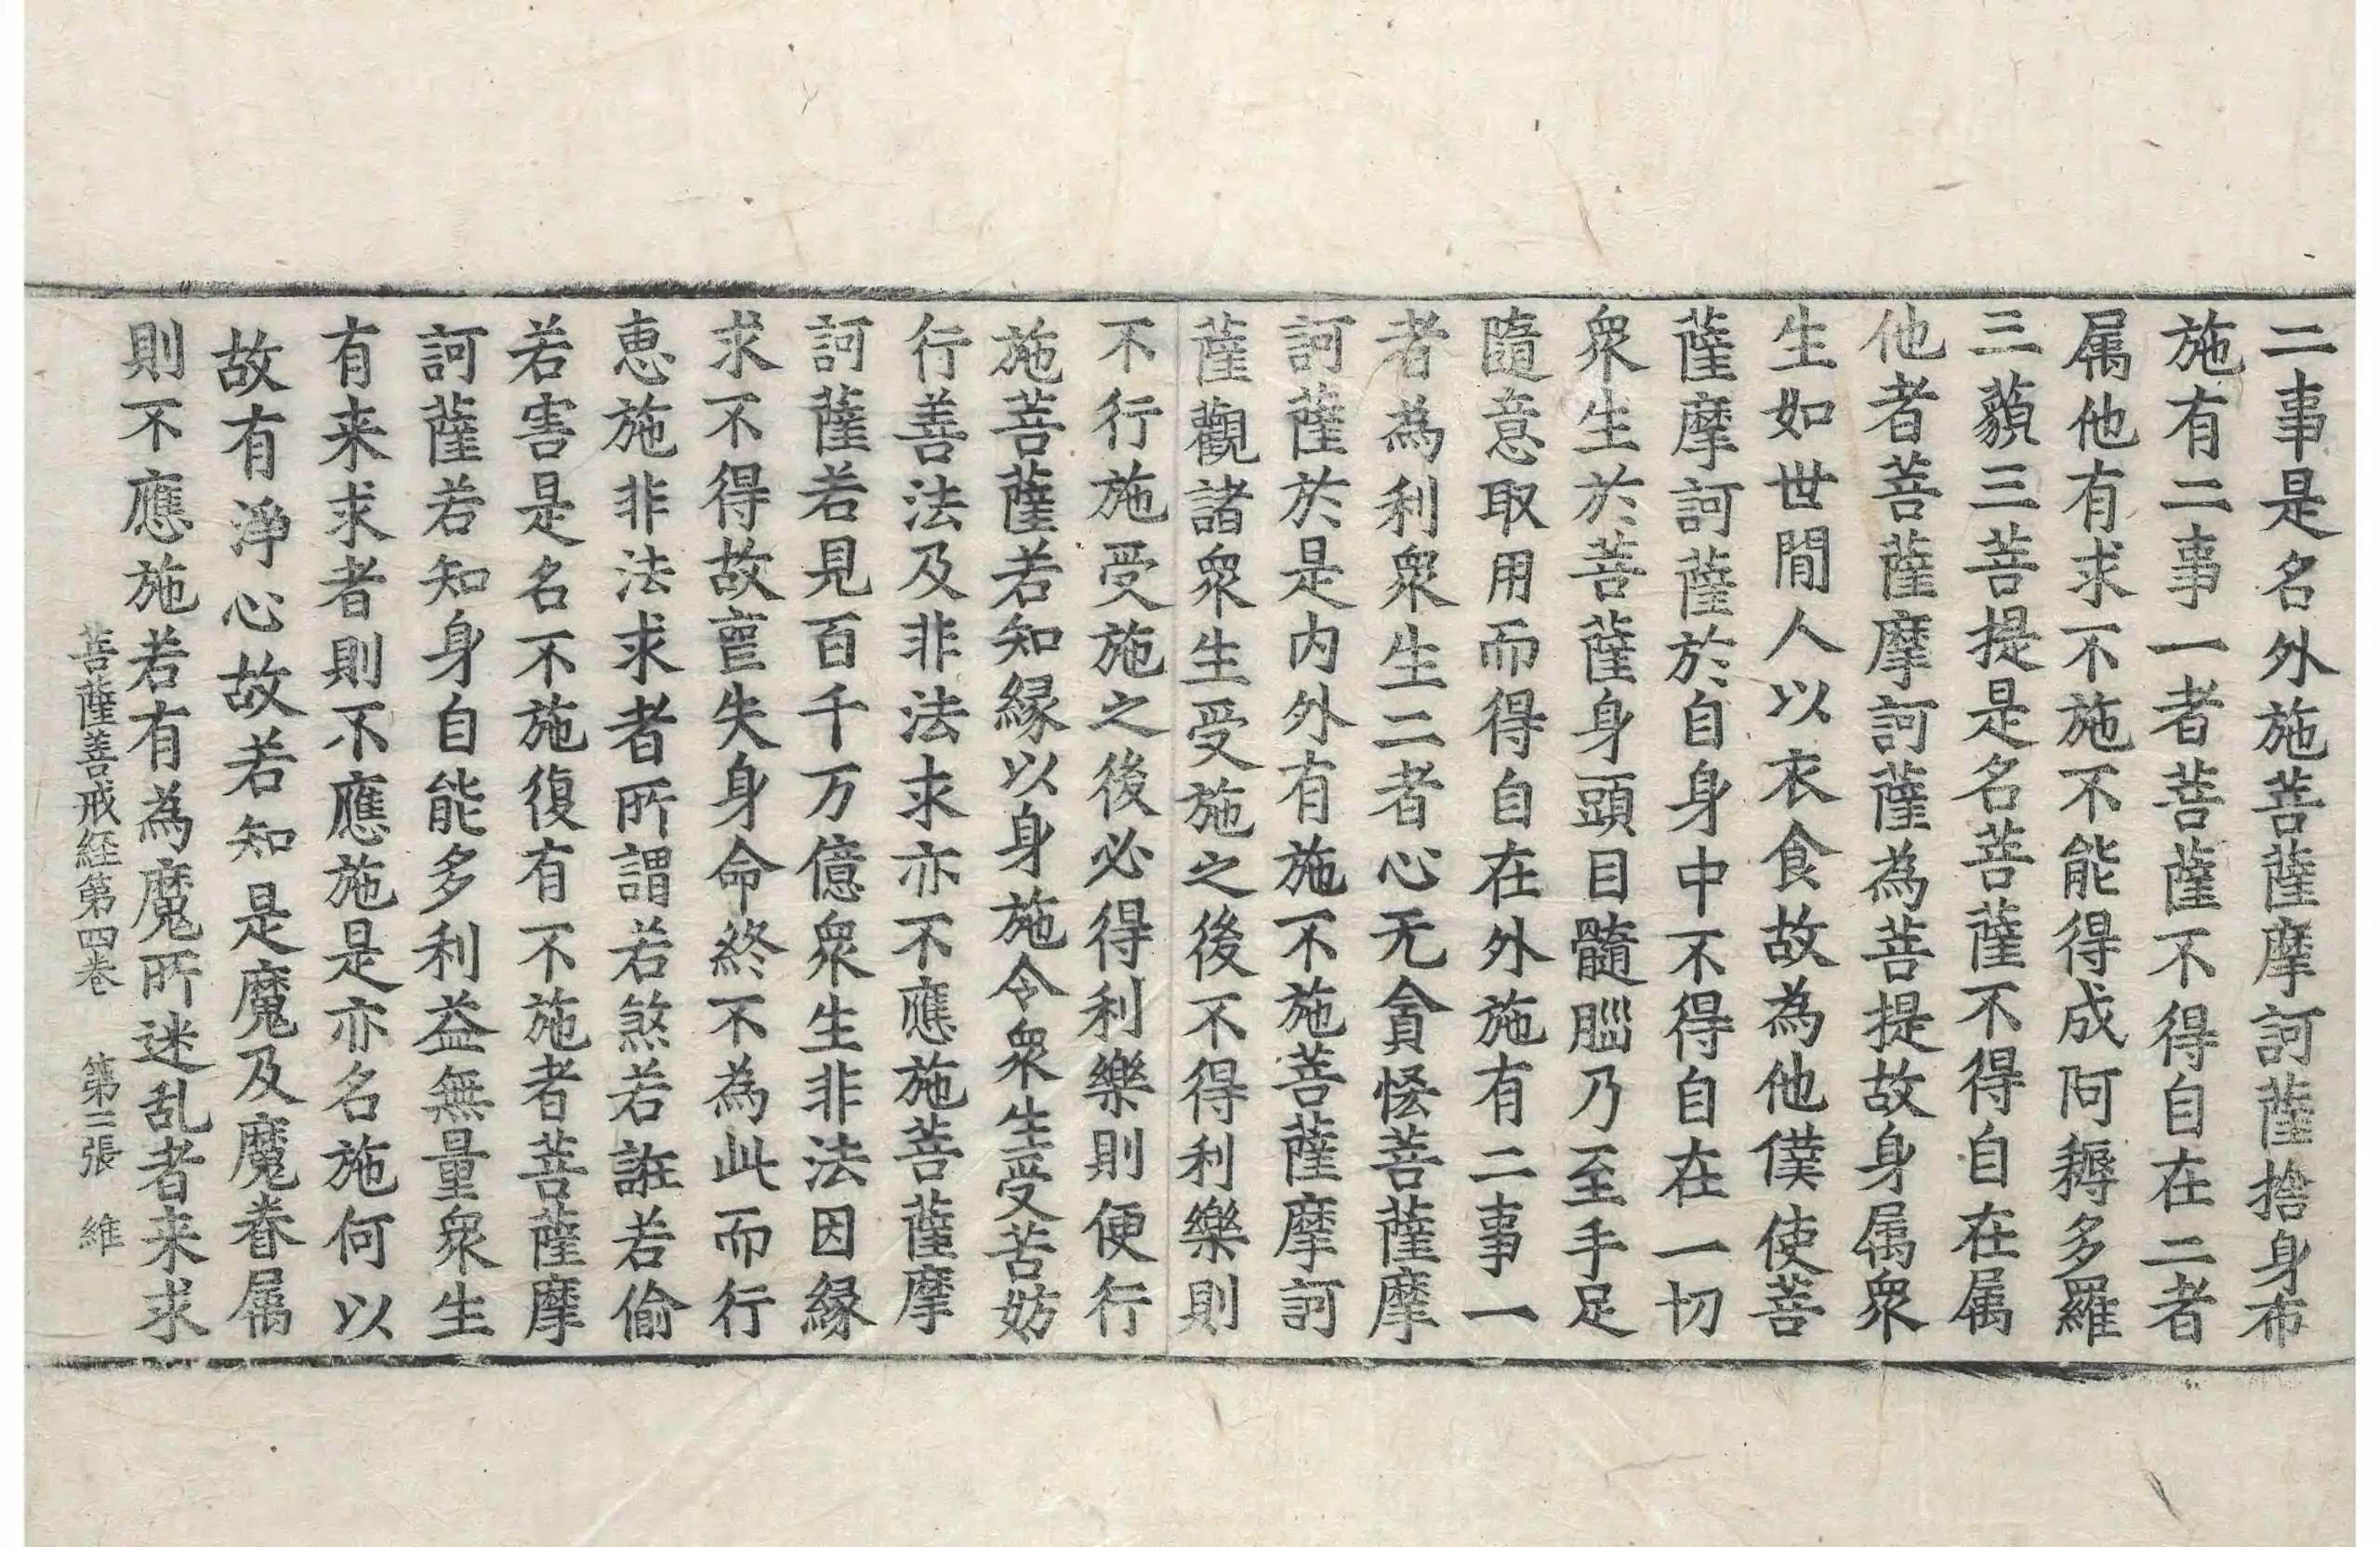 二事是名外施菩薩摩訶薩捨身布
施有二事一者菩薩不得自在二者
属他有求不施不能得成阿耨多羅
三藐三菩提是名菩薩不得自在属
他者菩薩摩訶薩為菩提故身属衆
生如世間人以衣食故為他僕使菩
薩摩訶薩於自身中不得自在一切
衆生於菩薩身頭目髓腦乃至手足
隨意取用而得自在外施有二事一
者為利衆生二者心无貪恡菩薩摩
訶薩於是内外有施不施菩薩摩訶
薩觀諸衆生受施之後不得利樂則
不行施受施之後必得利樂則便行
施菩薩若知縁以身施令衆生受苦妨
行善法及非法求亦不應施菩薩摩
訶薩若見百千万億衆生非法因縁
求不得故亶失身命終不為此而行
恵施非法求者所謂若煞若誑若偷
若害是名不施復有不施者菩薩摩
訶薩若知身自能多利益無量衆生
有来求者則不應施是亦名施何以
故有淨心故若知是魔及魔眷属
則不應施若有為魔所迷乱者来求
菩薩善戒経第四卷 第三張 維